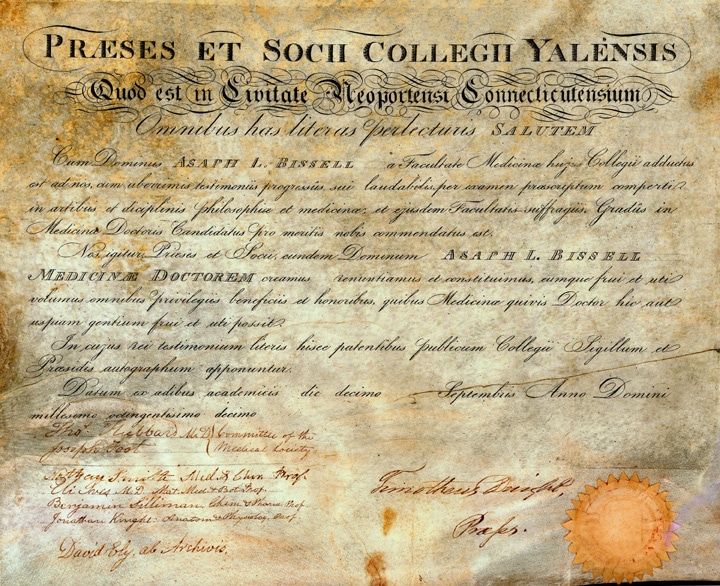 PRÆSES ET SOCII COLLEGII YALENSIS
Quod est in Civitate Neoportensi Connecticutensium
Omnibus has literas perlecturis SALUTEM
Cum Dominus ASAPH L. BISSELL a Facultate Medicinæ huj. Collegii adductus
est ad nos, cum uberrimis testimoniis progressûs sui laudabilis, per examen præscriptum comperti
in artibus et diciplinis philosophiæ et medicinæ, et ejusdem Facultatis suffragiis, Gradûs in
Medicina Doctoris Candidatus pro meritis nobis commendatus est.
Nos igitur, Præses et Socii, eundem Dominum ASAPH L. BISSELL
MEDICINÆ DOCTOREM creamus renuntiamus et constituimus, eumque frui et uti
volumus omnibus privilegiis beneficiis et honoribus, quibus Medicinæ quivis Doctor hic aut
uspiam gentium frui et uti possit.
In cujus rei testimonium literis hisce patentibus publicum Collegii Sigillum et
Præsidis autographum apponuntur.
Datum ex ædibus academiciis die decimo Septembris Anno Domini
millesimo octingentisimo decimo
Tho. Hubbard M.D. Committee of the
Joseph Foot Medical Society
Nathan Smith Med. & Chir. Prof.
Eli Ives M.D. Mat. Med. & Bot. Prof.
Benjamin Silliman, Chem. & Pharm. Prof.
Jonathan Knight, Anatom. & Physiolog. Prof.
Timotheus Dwight,
Præses.
David Ely, ab Archivis.